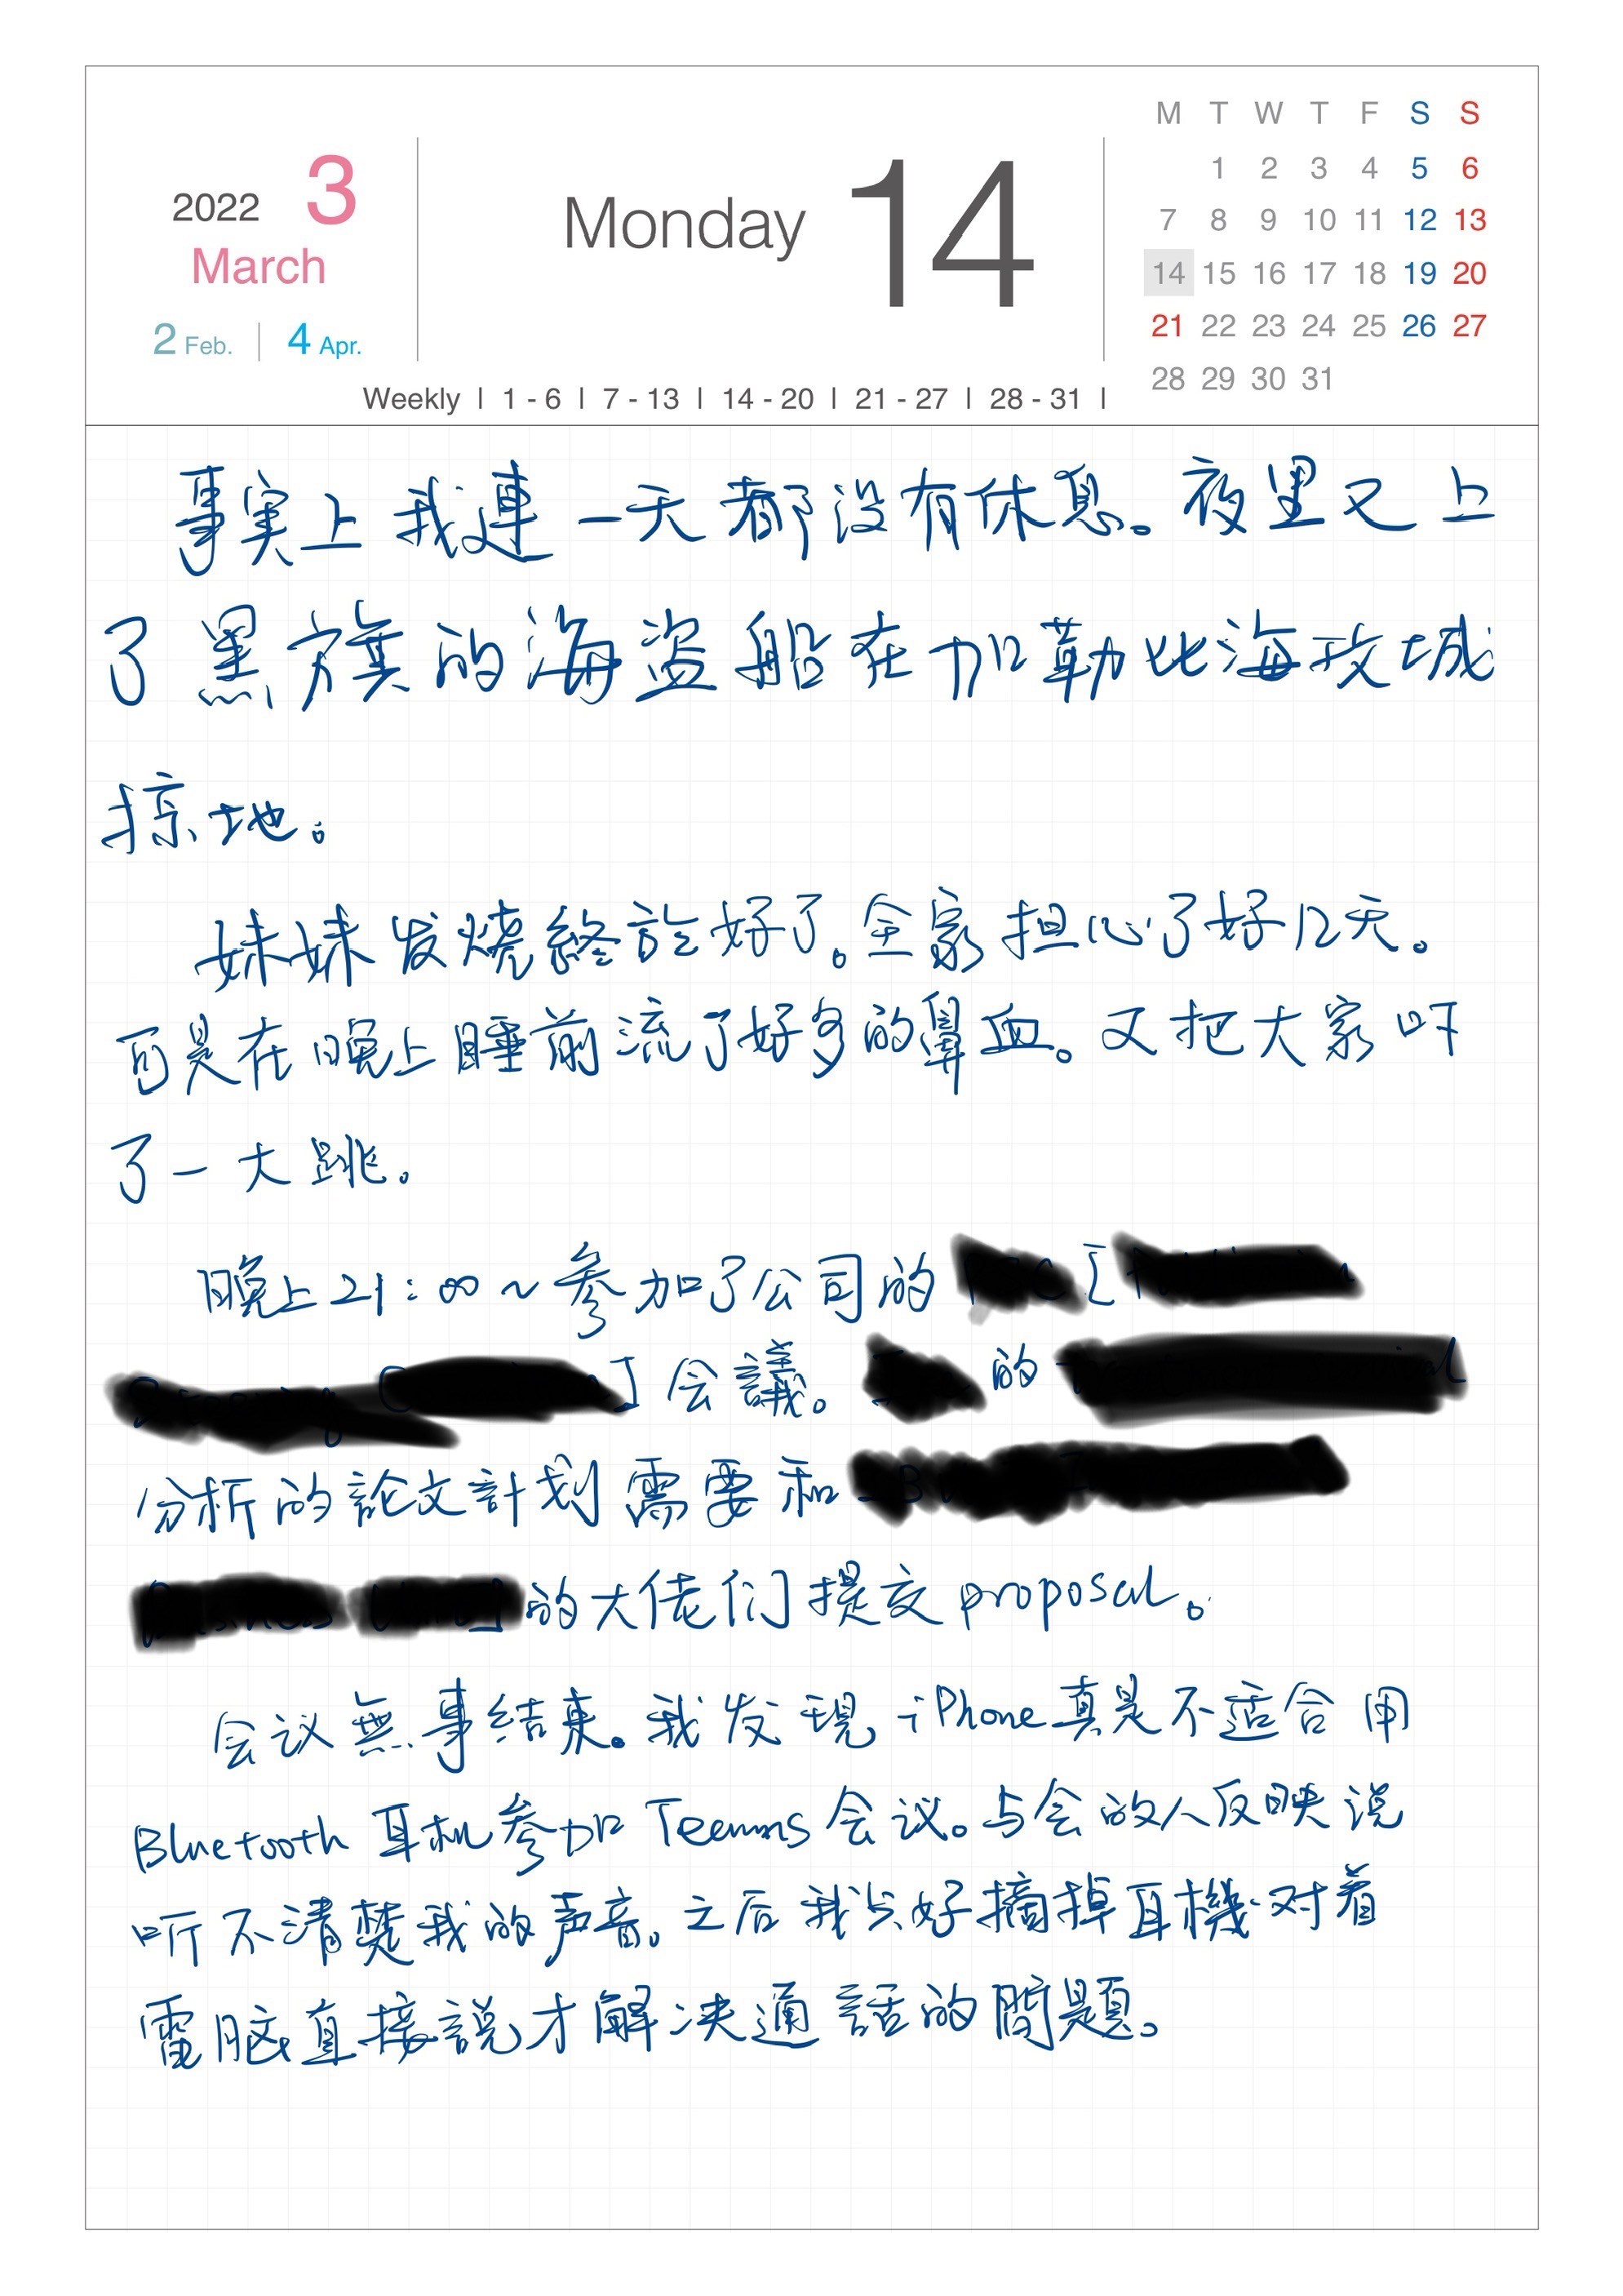 M T W T F S S
1 2 3 4 5 6
2022 3
March
Monday 14
7 8 9 10 11 12 13
14 15 16 17 18 19 20
21 22 23 24 25 26 27
28 29 30 31
2 Feb. | 4 Apr.
Weekly | 1 - 6 | 7 - 13 | 14 - 20 | 21 - 27 | 28 - 31 |
事実上我連一天都没有休息。夜里又上
了黑旗的海盗船在加勒比海攻城
掠地。
妹妹发烧終於好了。全家担心了好几天。
可是在晚上睡前流了好多的鼻血。又把大家吓
了一大跳。
晚上21:00~参加了公司的 [
] 会議。 的
分析的論文計划需要和
的大佬们提交proposal。
会议無事结束。我发现iPhone真是不适合用
Bluetooth耳机参加Teams会议。与会的人反映说
听不清楚我的声音。之后我只好摘掉耳機对着
電脑直接説才解决通話的問题。